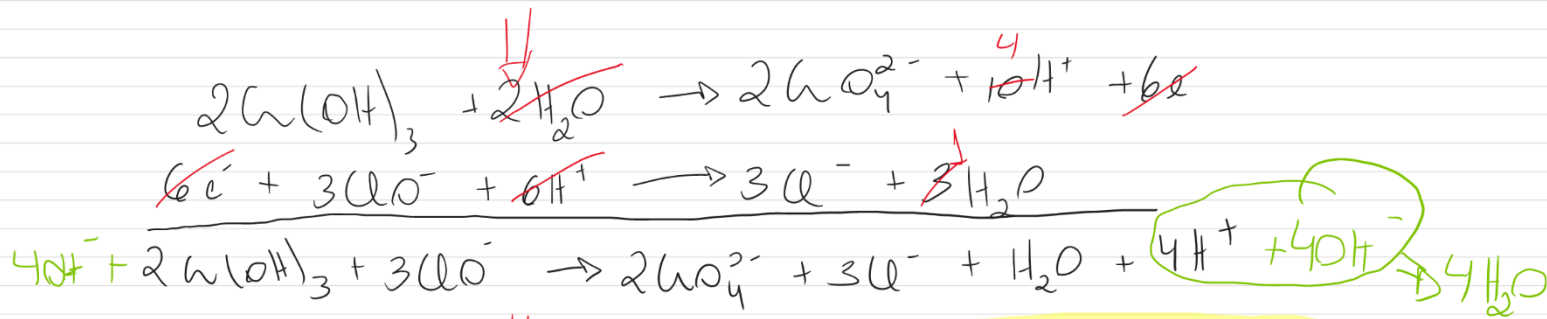 2Cr(OH)₃ + 2H₂O → 2CrO₄²⁻ + 4 10H⁺ + 6e
6e⁻ + 3ClO⁻ + 6H⁺ → 3Cl⁻ + 3 1 H₂O
4OH⁻ + 2Cr(OH)₃ + 3ClO⁻ → 2CrO₄²⁻ + 3Cl⁻ + H₂O + 4H⁺ + 4OH⁻ → 4H₂O